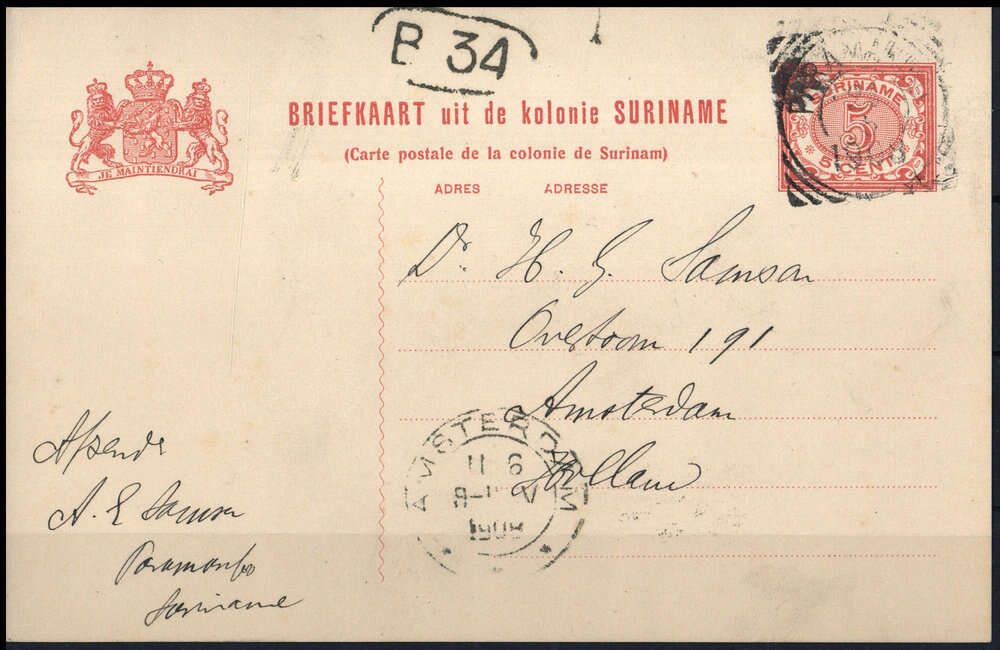 B 34
JE MAINTIENDRAI
BRIEFKAART uit de kolonie SURINAME
(Carte postale de la colonie de Surinam)
ADRES ADRESSE
SURINAME
5
5 CENT
Dr. H. G. Samson
Overtoom 191
Amsterdam
Holland
AMSTERDAM
11 6
1908
A. E Samson
Paramaribo
Suriname